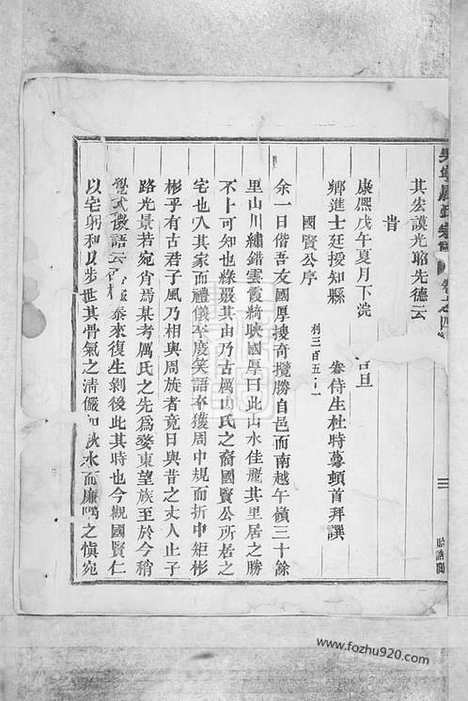 其宏謨光昭先德云
旹
康熙戊午夏月下浣 吉旦
鄉進士廷授知縣 眷侍生杜時
頓首拜譔
國賢公序 利三百五一
余一日偕吾友國厚搜奇攬勝自邑而南越午嶺三十餘
里山川繡錯雲霞綺映國厚曰此山水佳
其里居之勝
不卜可知也緣
其由乃古厲山氏之裔國賢公所居之
宅也入其家而禮儀
度笑語卒獲周中規而折中矩彬
彬乎有古君子風乃相與周旋者竟日與昔之丈人止子
路光景若宛肖焉其考厲氏之先為婺東望族至於今稍
泰來復生剝後此其時也今觀國賢仁
以宅躬和以
其骨氣之清儼如秋水而廉
之慎宛
卷之四
三
貽谷
www.fozhu920.com